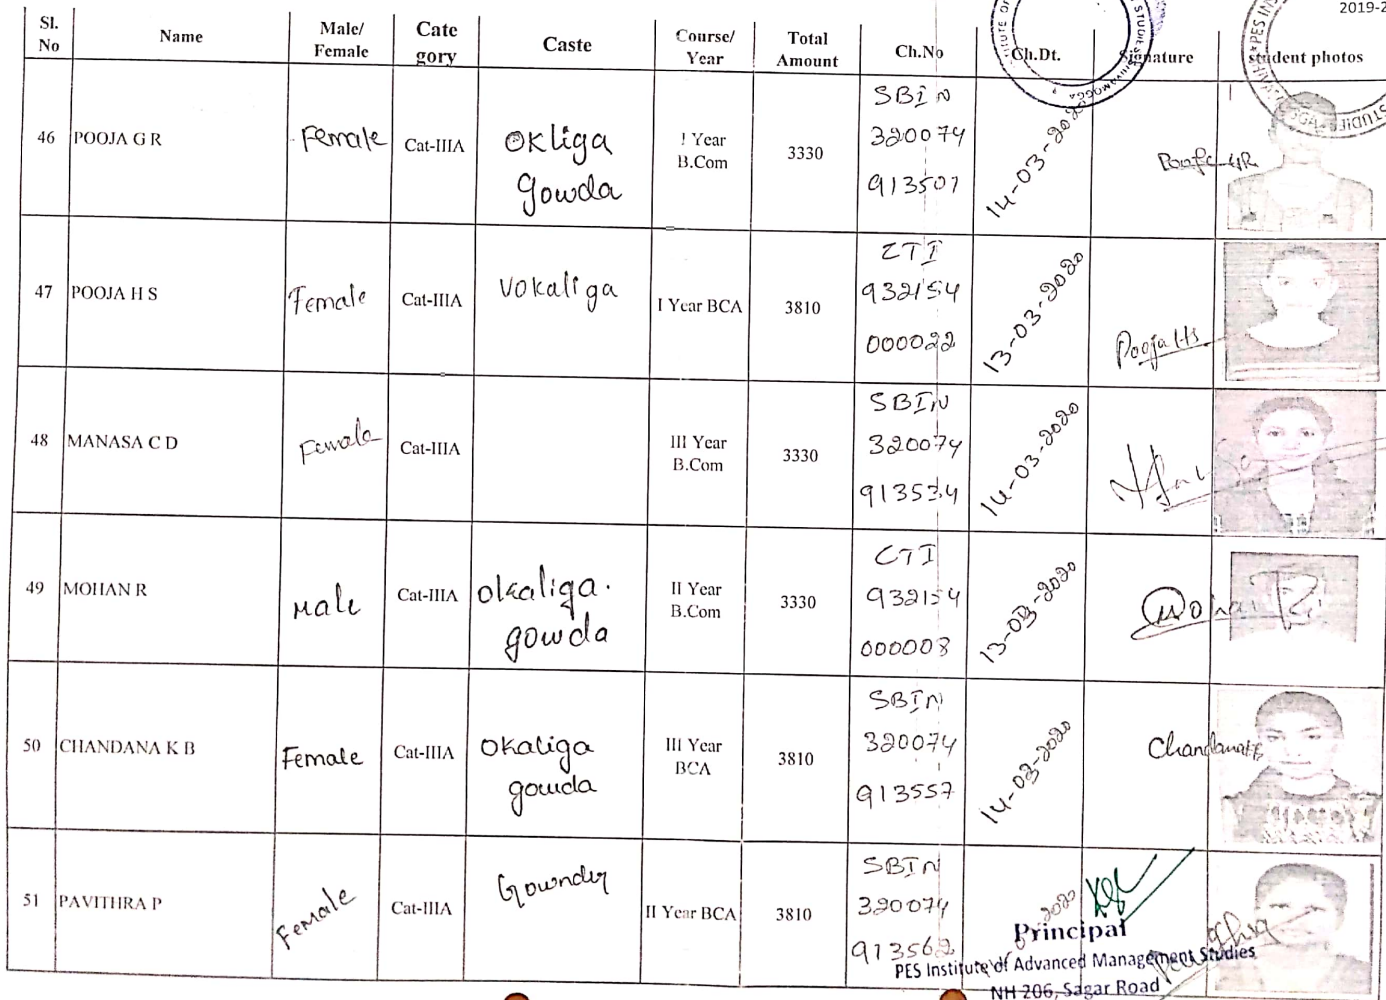 2019-2
Sl. No Name Male/ Female Cate gory Caste Course/ Year Total Amount Ch.No Ch.Dt. Signature student photos
46 POOJA G R Female Cat-IIIA Okliga gowda I Year B.Com 3330 SBIN 320074 913507 14-03-2020 Pooja GR
47 POOJA H S Female Cat-IIIA Vokaliga I Year BCA 3810 CTI 932154 000022 13-03-2020 Pooja HS
48 MANASA C D Female Cat-IIIA III Year B.Com 3330 SBIN 320074 913534 14-03-2020
49 MOHAN R Male Cat-IIIA Okaliga. gowda II Year B.Com 3330 CTI 932154 000008 13-03-2020 Mohan R
50 CHANDANA K B Female Cat-IIIA Okaliga gowda III Year BCA 3810 SBIN 320074 913557 14-03-2020
51 PAVITHRA P Female Cat-IIIA II Year BCA 3810 SBIN 320074 913562 2020
Principal
PES Institute of Advanced Management Studies
NH 206, Sagar Road